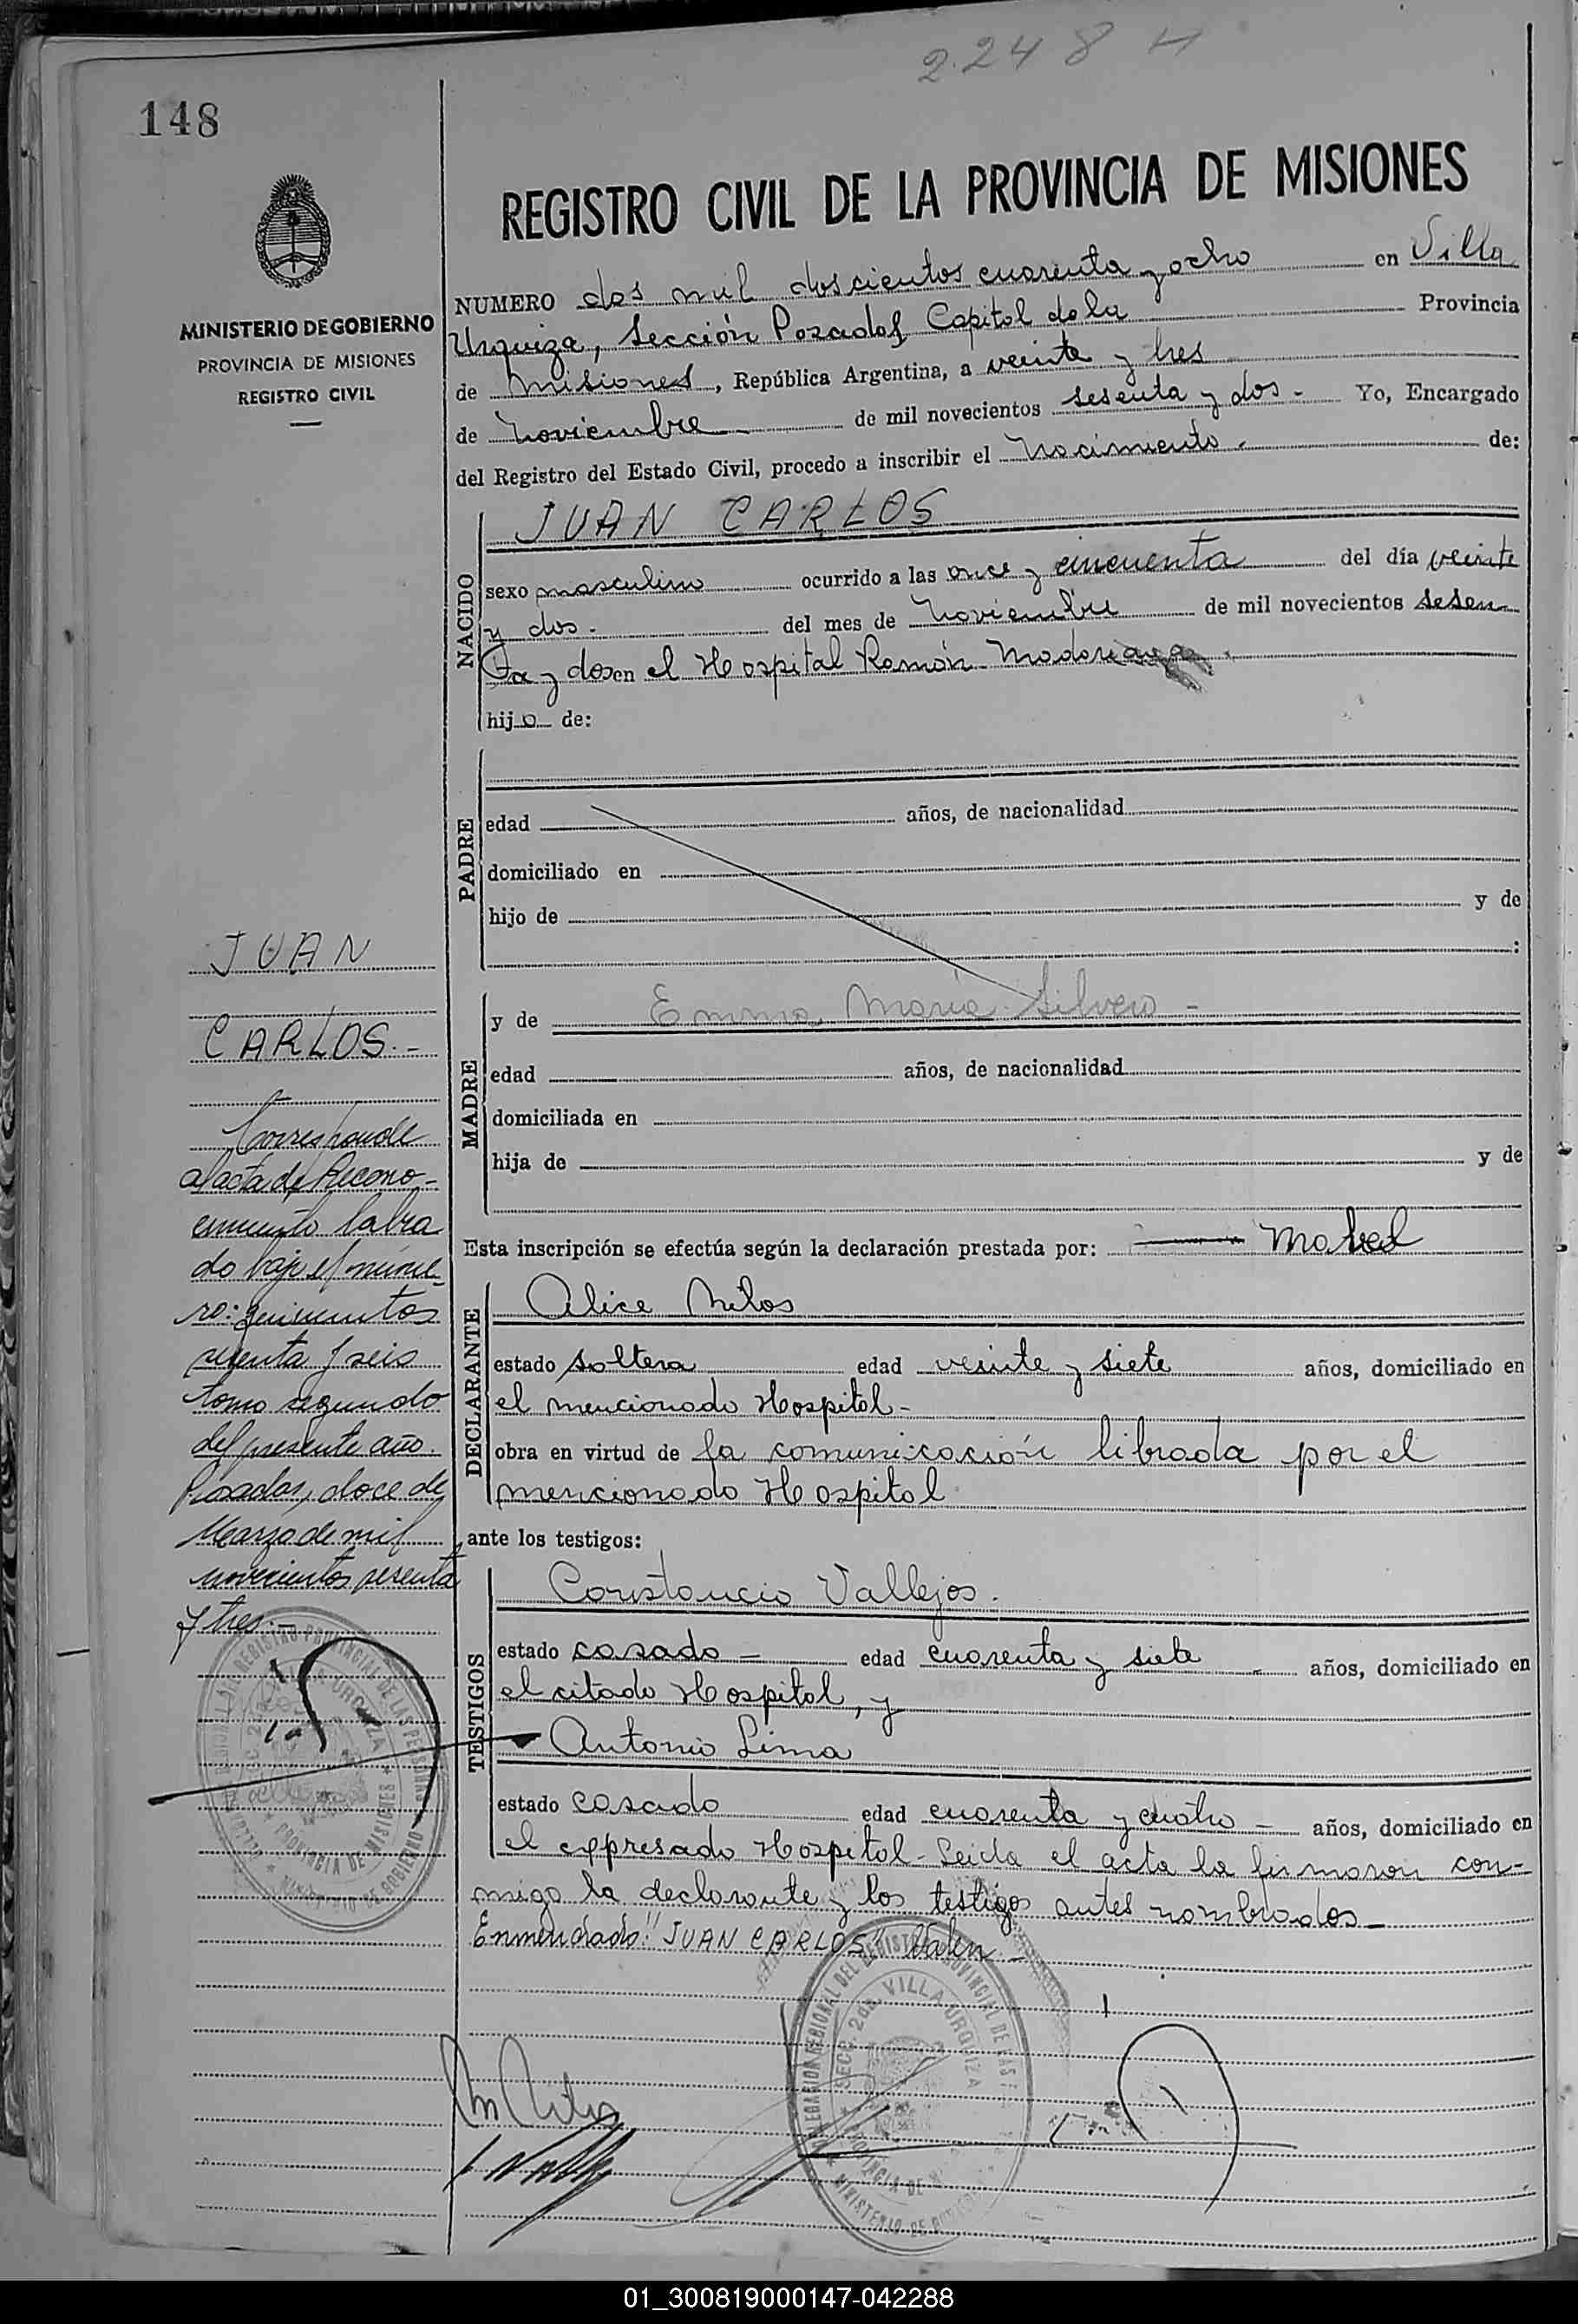 2248
148
REGISTRO CIVIL DE LA PROVINCIA DE MISIONES
MINISTERIO DE GOBIERNO
PROVINCIA DE MISIONES
REGISTRO CIVIL
NUMERO dos mil doscientos cuarenta y ocho en Villa
Urquiza, Sección Posadas Capital de la Provincia
de Misiones, República Argentina, a veinte y tres
de Noviembre de mil novecientos sesenta y dos - Yo, Encargado
del Registro del Estado Civil, procedo a inscribir el Nacimiento. de:
NACIDO
JUAN CARLOS
sexo masculino ocurrido a las once y cincuenta del día veinte
y dos. del mes de Noviembre de mil novecientos sesen
ta y dos en el Hospital Ramón Madariaga
hijo de:
PADRE
edad años, de nacionalidad
domiciliado en
hijo de y de
:
MADRE
y de Emma María Silvero -
edad años, de nacionalidad
domiciliada en
hija de y de
Esta inscripción se efectúa según la declaración prestada por: Mabel
DECLARANTE
Alice Milos
estado soltera edad veinte y siete años, domiciliado en
el mencionado Hospital -
obra en virtud de la comunicación librada por el
mencionado Hospital
ante los testigos:
TESTIGOS
Constancio Vallejos.
estado casado - edad cuarenta y siete años, domiciliado en
el citado Hospital, y
Antonio Lima
estado casado edad cuarenta y cuatro - años, domiciliado en
el expresado Hospital - Leida el acta la firmaron con-
migo la declarante y los testigos antes nombrados -
Enmendado: "JUAN CARLOS" Valen -
JUAN
CARLOS. -
Corresponde
al acta de Recono-
cimiento labra
do bajo el núme-
ro: quinientos
sesenta y seis
tomo segundo
del presente año.
Posadas, doce de
Marzo de mil
novecientos sesenta
y tres. -
SECC. 2da. VILLA URQUIZA
PROVINCIA DE MISIONES
01_300819000147-042288